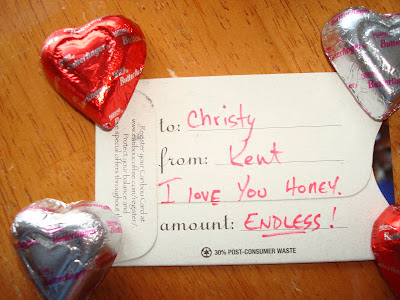 to: Christy
from: Kent
I love You Honey.
amount: ENDLESS!
30% POST-CONSUMER WASTE
Register your Caribou Card at
www.cariboucoffee.com/register/
Protect your balance and
special offers throughout
Butterfinger